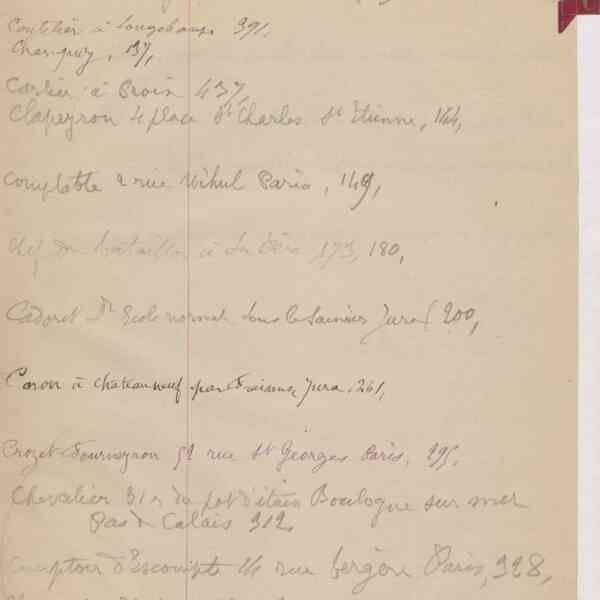 à Longchamps 391,
137,
Cartier à 437,
Clapeyron 4 place St Charles St Etienne, 144,
Comptable 2 rue Paris, 149,
Chef de bataillon à La Fère 179, 180,
Cadoret Dr Ecole normale Lons le Saunier Jura 200,
Caron à Chateauneuf par Fraisans Jura, 261,
Crozet Fourneyron 52 rue St Georges Paris, 295,
Chevalier 31 r du pot d'étain Boulogne sur mer
Pas de Calais 312,
Comptoir d'Escompte 14 rue bergère Paris, 328,